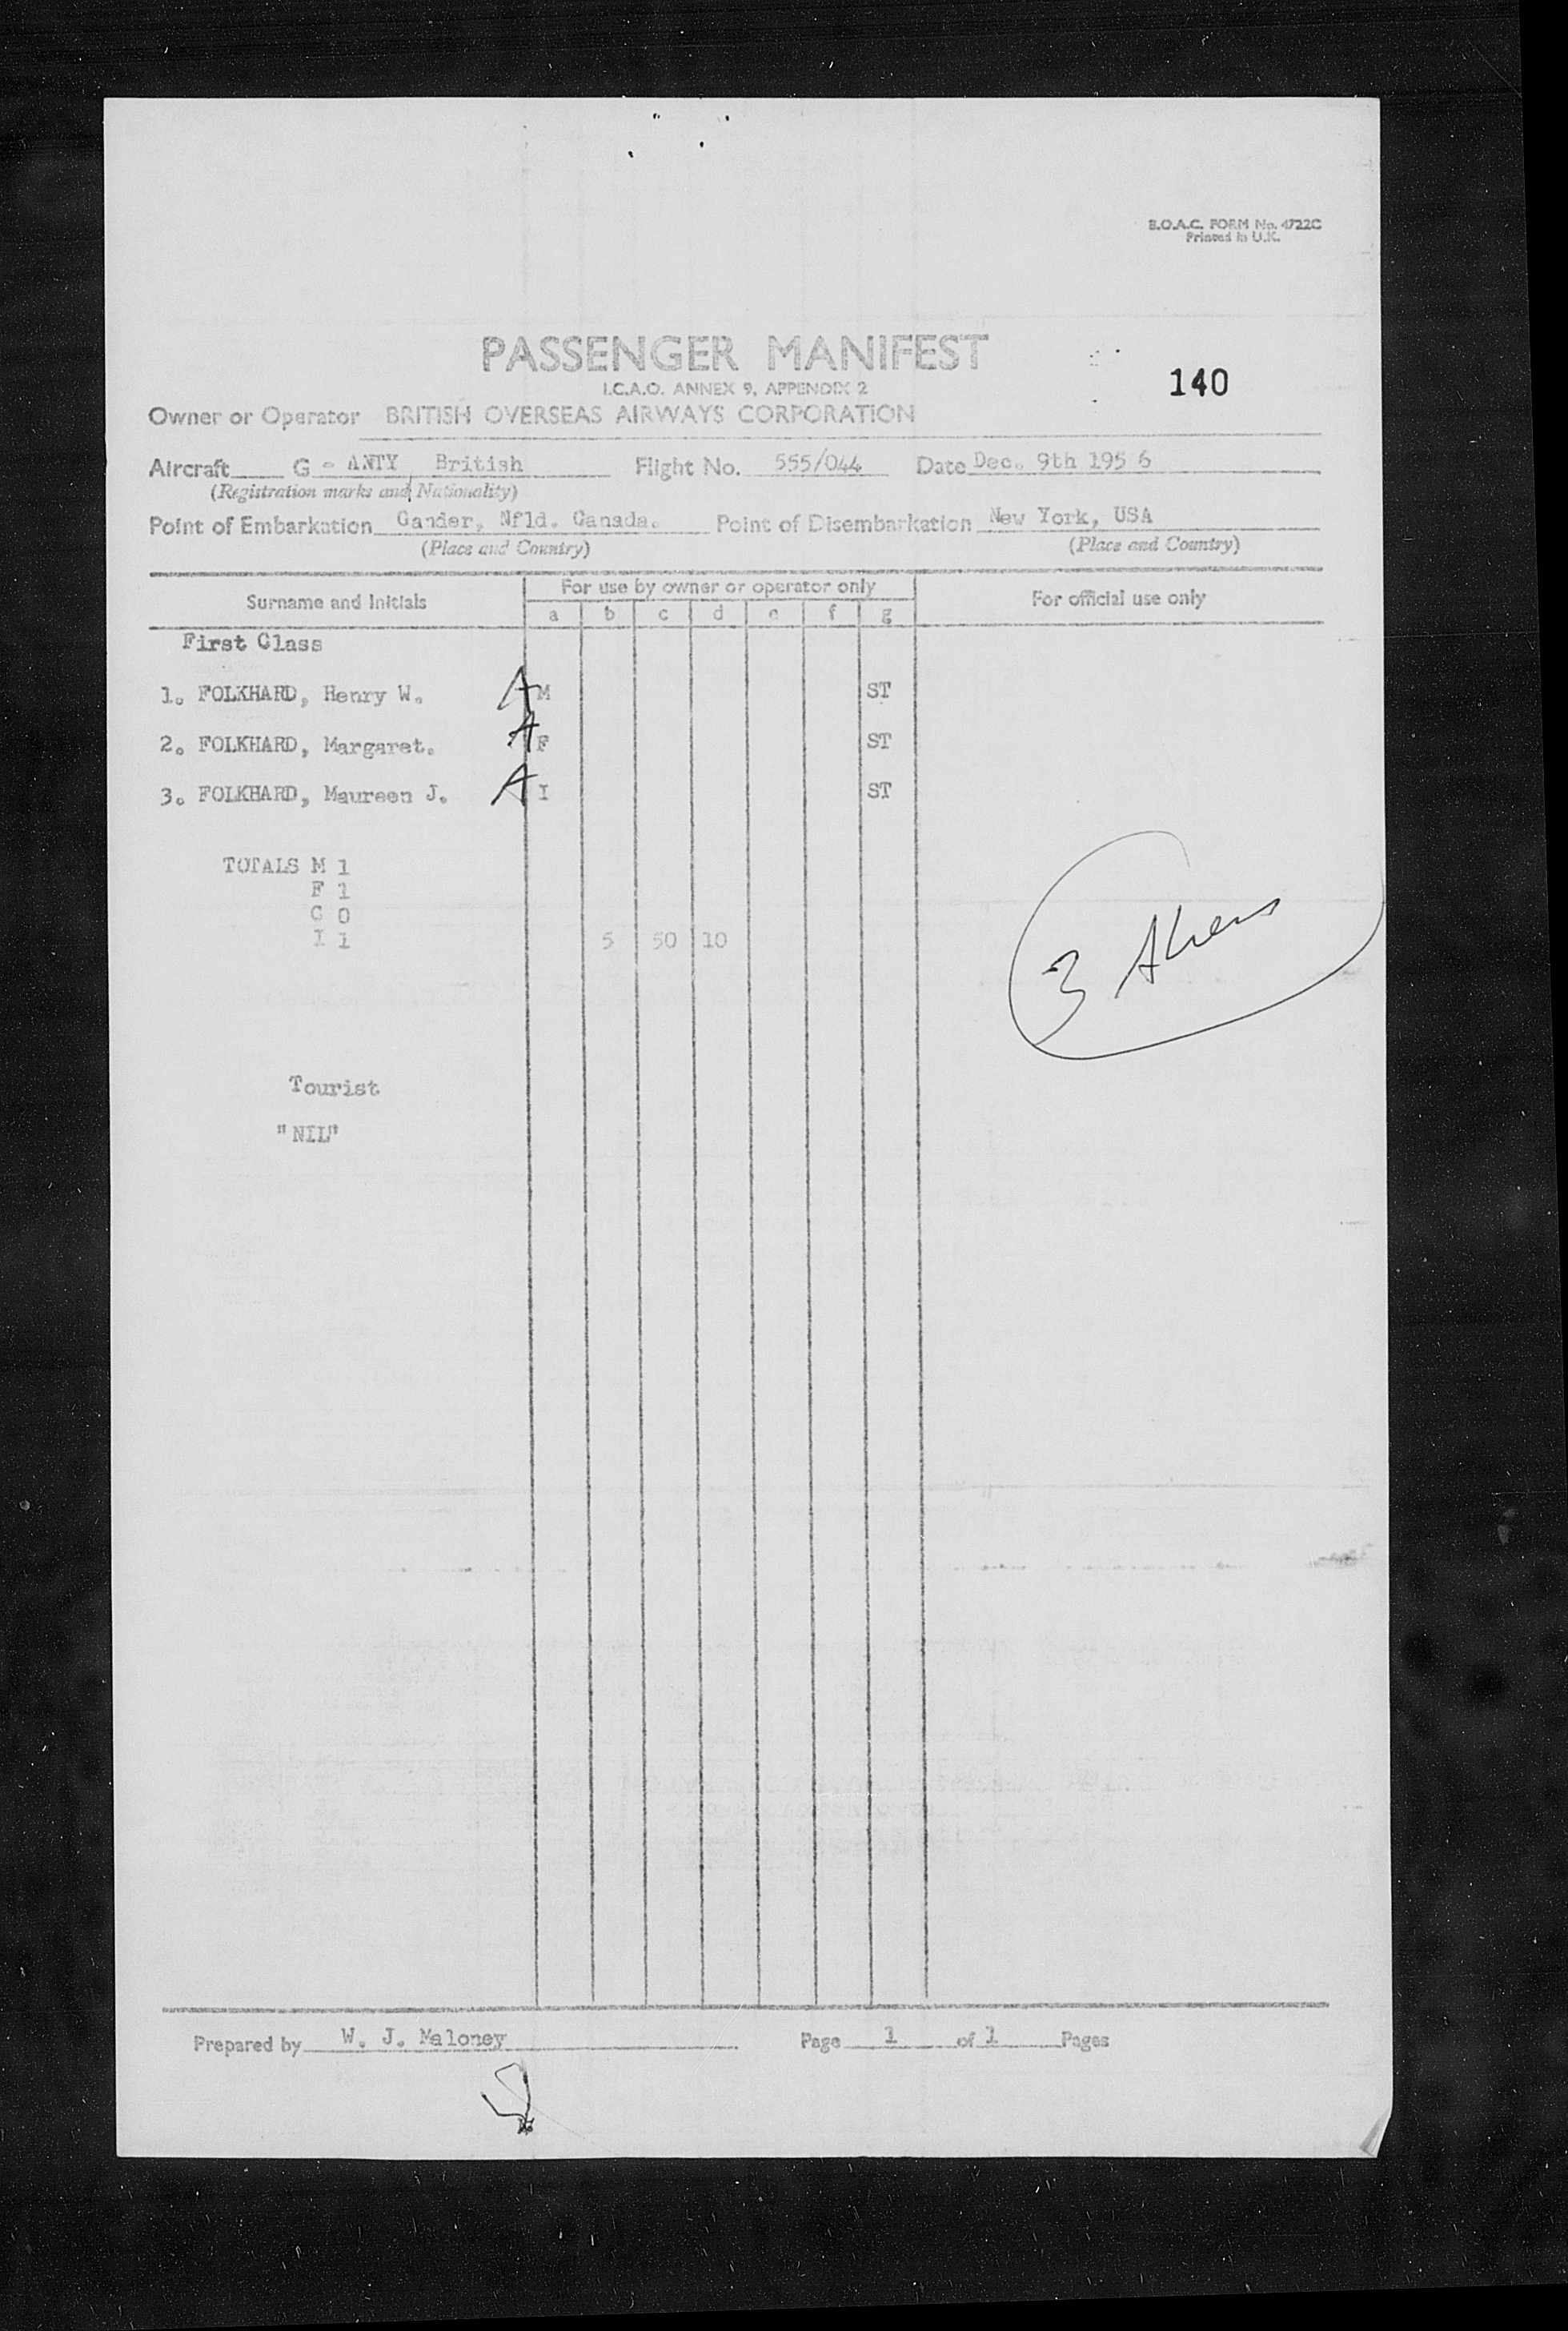 B.O.A.C. FORM No. 4722C
Printed in U.K.
PASSENGER MANIFEST
I.C.A.O. ANNEX 9, APPENDIX 2
140
Owner or Operator BRITISH OVERSEAS AIRWAYS CORPORATION
Aircraft G - ANTY British Flight No. 555/044 Date Dec. 9th 195 6
(Registration marks and Nationality)
Point of Embarkation Gander, Nfld. Canada. Point of Disembarkation New York, USA
(Place and Country) (Place and Country)
Surname and Initials For use by owner or operator only For official use only
a b c d e f g
First Class
1. FOLKHARD, Henry W. A M ST
2. FOLKHARD, Margaret. A F ST
3. FOLKHARD, Maureen J. A I ST
TOTALS M 1
F 1
C 0
I 1 5 50 10
3 Aliens
Tourist
"NIL"
Prepared by W. J. Maloney Page 1 of 1 Pages